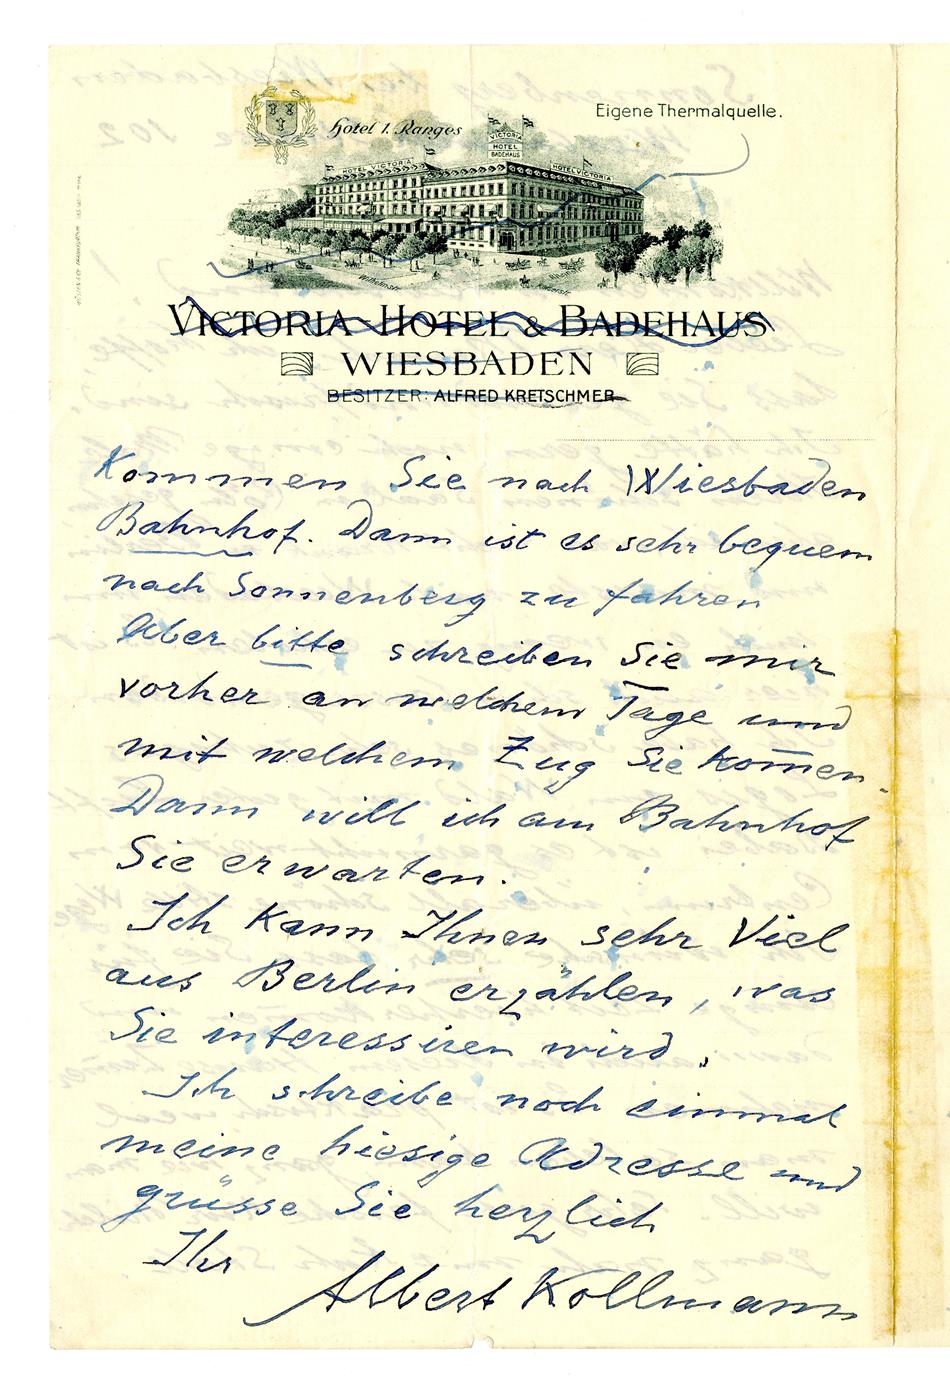 Eigene Thermalquelle.
Hotel 1. Ranges
VICTORIA
HOTEL
BADEHAUS
HOTEL VICTORIA
HOTEL VICTORIA
VICTORIA-HOTEL & BADEHAUS
WIESBADEN
BESITZER: ALFRED KRETSCHMER
Kommen Sie nach Wiesbaden
Bahnhof. Dann ist es sehr bequem
nach Sonnenberg zu fahren
Aber bitte schreiben Sie mir
vorher an welchem Tage und
mit welchem Zug Sie kom̅en.
Dann will ich am Bahnhof
Sie erwarten.
Ich kann Ihnen sehr Viel
aus Berlin erzählen, was
Sie interessiren wird.
Ich schreibe noch einmal
meine hiesige Adresse und
grüsse Sie herzlich
Ihr
Albert Kollmann